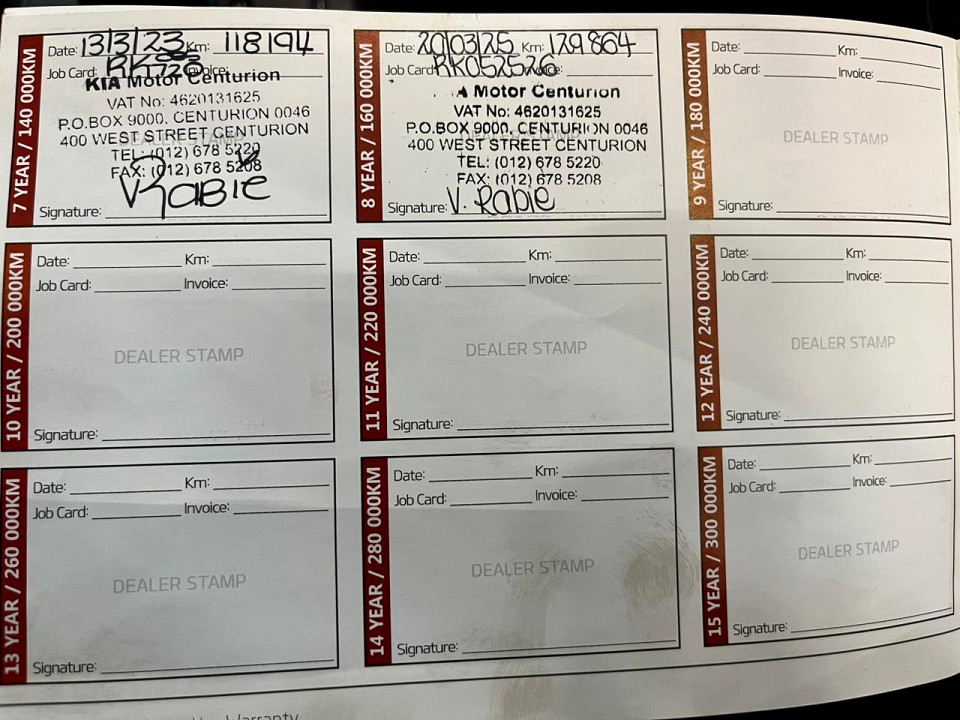 7 YEAR / 140 000KM
Date: 13/3/23 Km: 118194
Job Card: Invoice:
KIA Motor Centurion
VAT No: 4620131625
P.O.BOX 9000, CENTURION 0046
400 WEST STREET CENTURION
TEL: (012) 678 5220
FAX: (012) 678 5208
Signature: V Rabie
8 YEAR / 160 000KM
Date: 20/03/25 Km: 129864
Job Card: RK052526 Invoice:
A Motor Centurion
VAT No: 4620131625
P.O.BOX 9000, CENTURION 0046
400 WEST STREET CENTURION
TEL: (012) 678 5220
FAX: (012) 678 5208
Signature: V. Rabie
9 YEAR / 180 000KM
Date: Km:
Job Card: Invoice:
DEALER STAMP
Signature:
10 YEAR / 200 000KM
Date: Km:
Job Card: Invoice:
DEALER STAMP
Signature:
11 YEAR / 220 000KM
Date: Km:
Job Card: Invoice:
DEALER STAMP
Signature:
12 YEAR / 240 000KM
Date: Km:
Job Card: Invoice:
DEALER STAMP
Signature:
13 YEAR / 260 000KM
Date: Km:
Job Card: Invoice:
DEALER STAMP
Signature:
14 YEAR / 280 000KM
Date: Km:
Job Card: Invoice:
DEALER STAMP
Signature:
15 YEAR / 300 000KM
Date: Km:
Job Card: Invoice:
DEALER STAMP
Signature:
Warranty